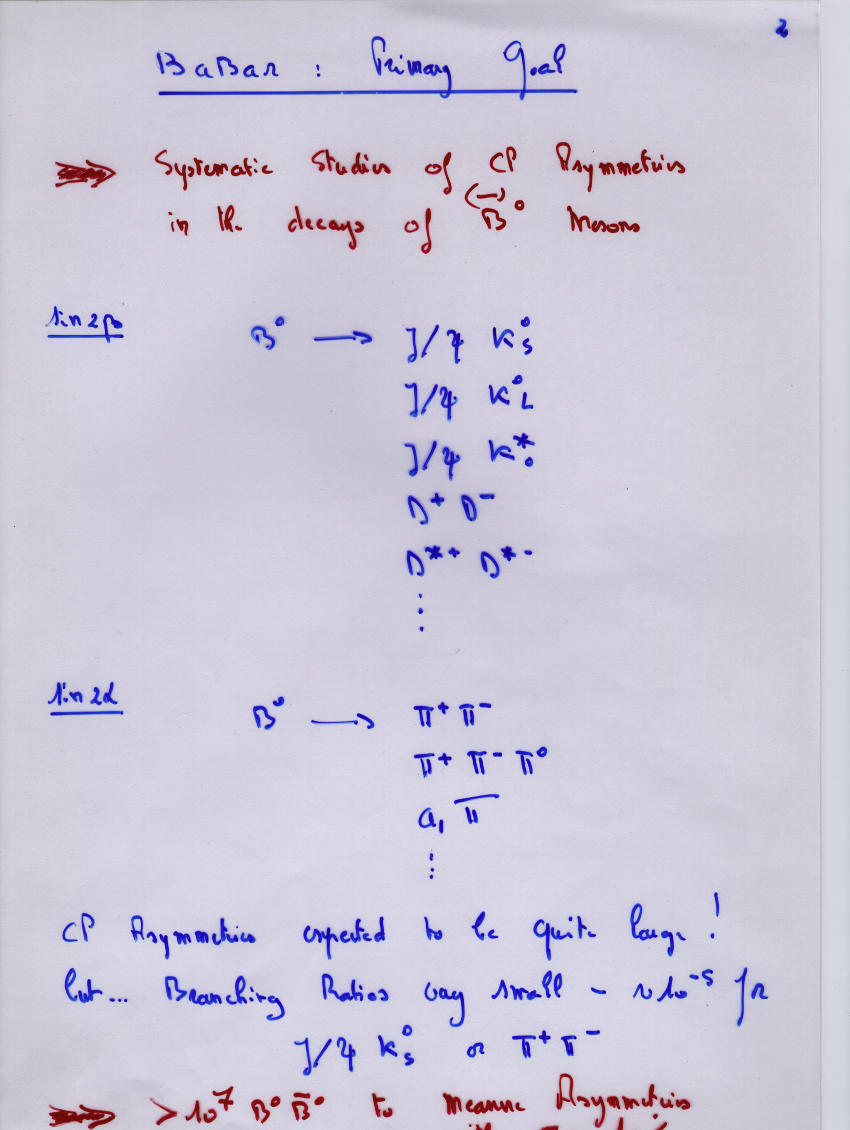 2
BaBar : Primary Goal
Systematic Studies of CP Asymmetries
in the decays of (—) B⁰ Mesons
sin 2β B⁰ → J/ψ K⁰s
J/ψ K⁰L
J/ψ K*₀
D⁺ D⁻
D*⁺ D*⁻
⋮
sin 2α B⁰ → π⁺ π⁻
π⁺ π⁻ π⁰
a₁ π
⋮
CP Asymmetries expected to be quite large !
but... Branching Ratios very small – ~ 10⁻⁵ for
J/ψ K⁰s or π⁺ π⁻
> 10⁷ B⁰ B̄⁰ to measure Asymmetries